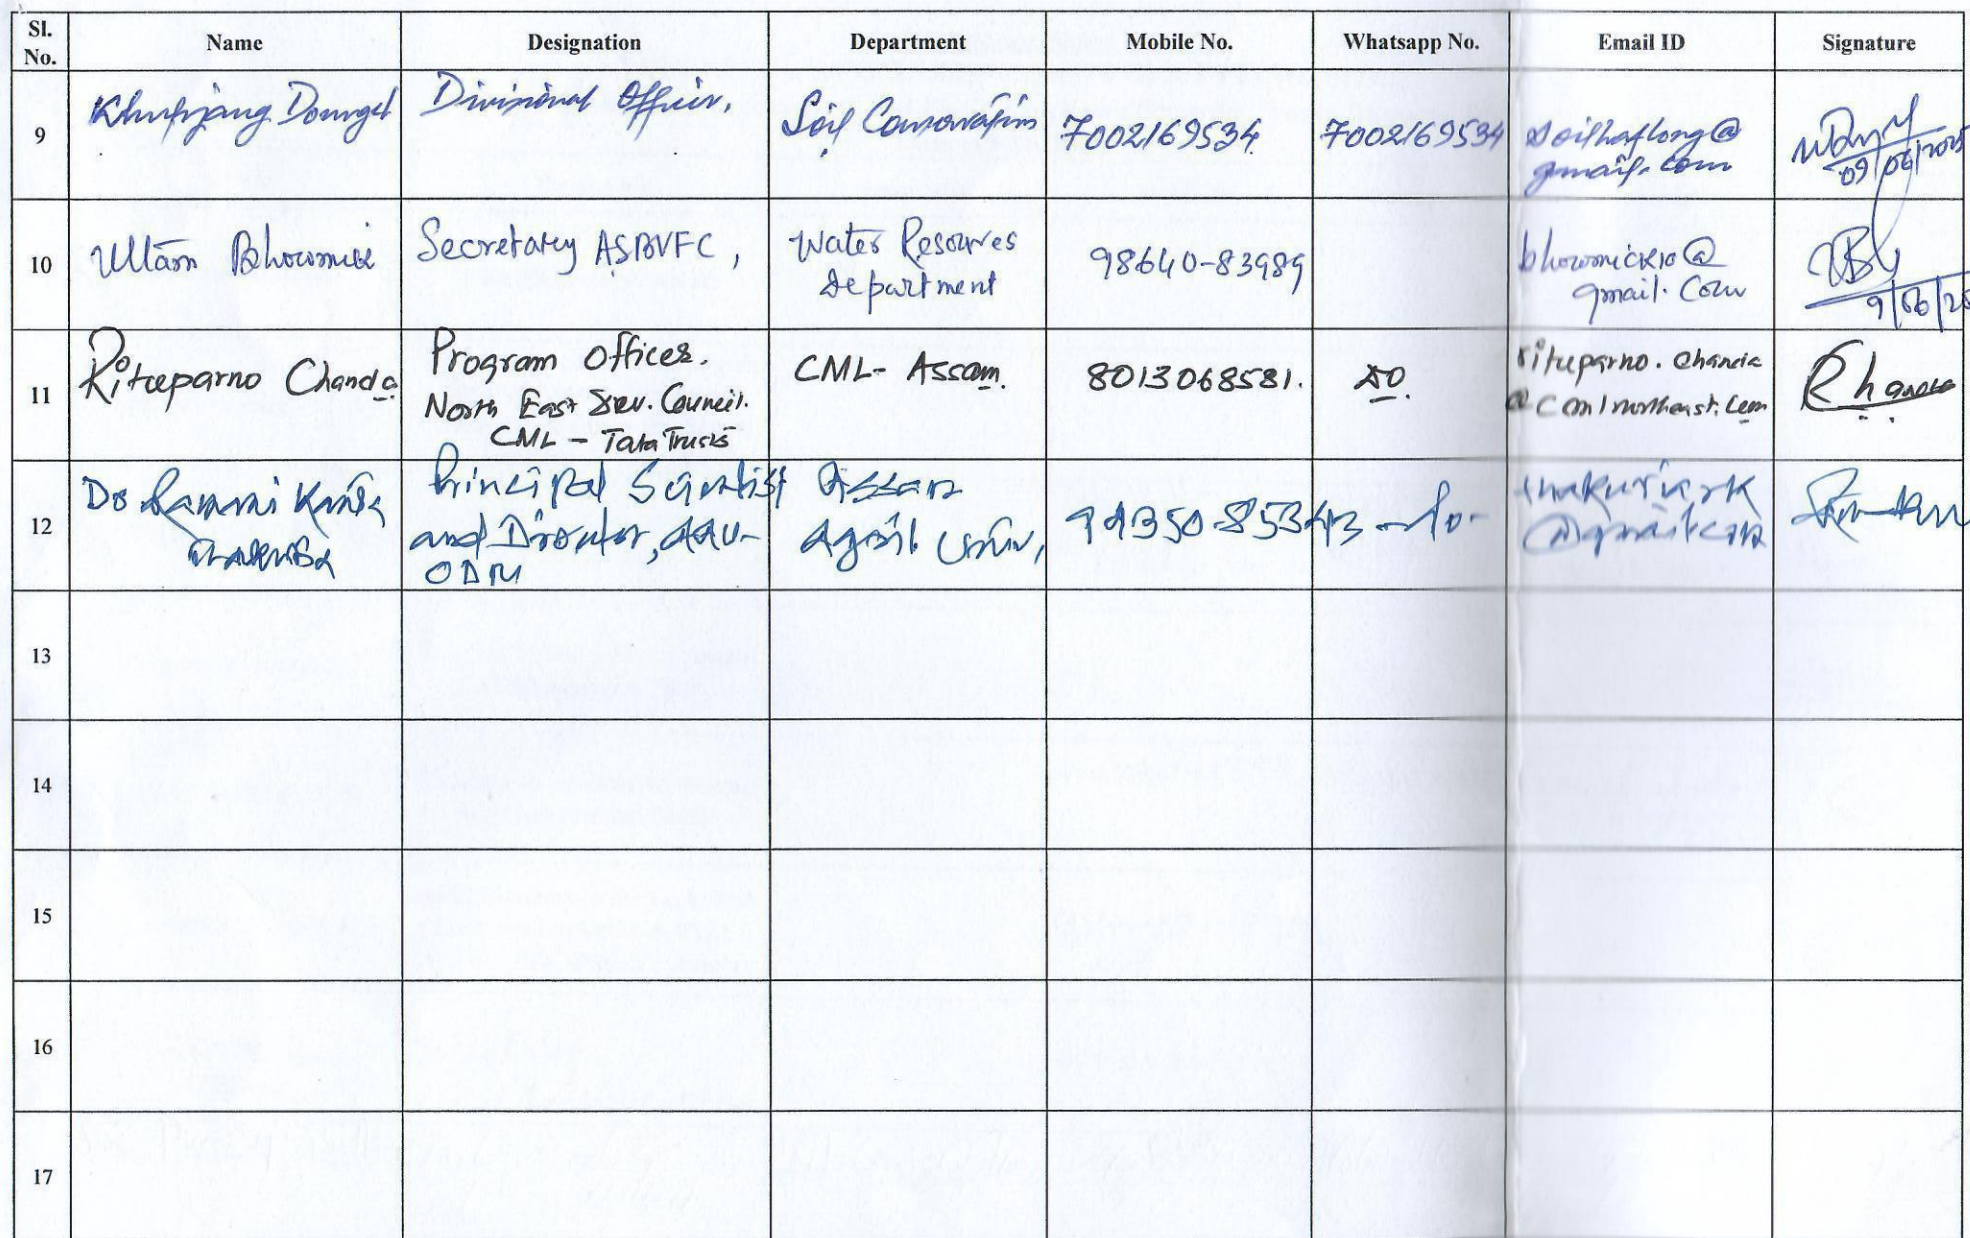 Sl. No. Name Designation Department Mobile No. Whatsapp No. Email ID Signature
9 Doungel Divisional Officer, Soil Conservation 7002169534 7002169534 soilhaflong@
gmail.com
09/06/2025
10 Uttam Bhowmick Secretary ASBVFC, Water Resources
Department 98640-83989 bhowmick10@
gmail.com
9/06/25
11 Rituparno Chanda Program Officer.
North East Dev. Council.
CML - Tata Trusts CML- Assam. 8013068581. DO. rituparno.chanda
@cmlnortheast.com
12 Dr Ramani Kanta
Thakuria Principal Scientist
and Director, AAU-
ODM Assam
Agril Univ, 94350-85343 -do- thakuriark
@gmail.com
13
14
15
16
17